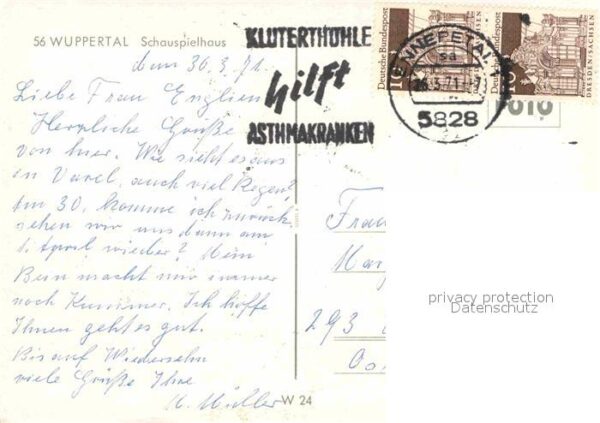 56 WUPPERTAL Schauspielhaus
KLUTERTHÖHLE
hilft
ASTHMAKRANKEN
ENNEPETAL 1
5828
Deutsche Bundespost
DRESDEN/SACHSEN
Deutsche Bundespost
DRESDEN/SACHSEN
den 26.3.71.
Liebe Frau Englien
Herzliche Grüße
von hier. Wie sieht es aus
in Varel, auch viel Regen?
Am 30. komme ich zurück
sehen wir uns dann am
1. April wieder? Mein
Bein macht mir immer
noch Kummer. Ich hoffe
Ihnen geht es gut.
Bis auf Wiedersehn
viele Grüße Ihre
Müller
Frau
293
W 24
privacy protection
Datenschutz